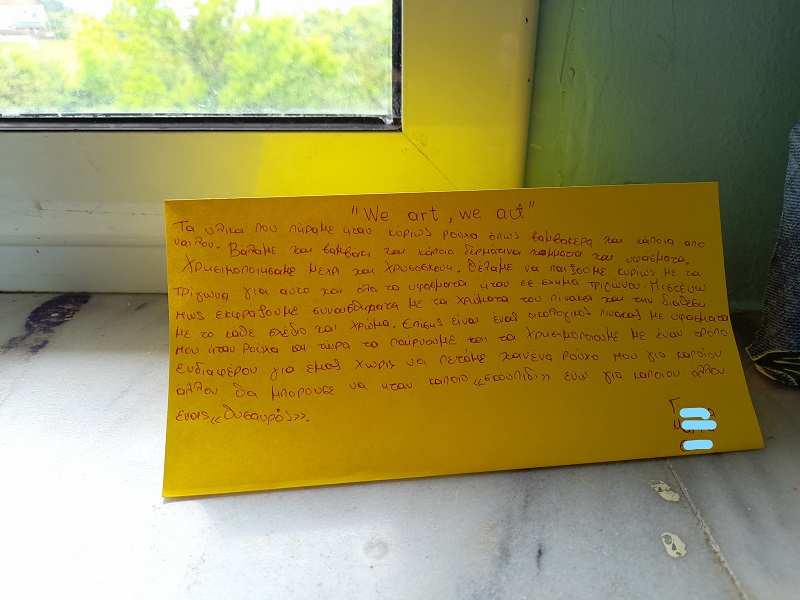 "We art, we act"
Τα υλικα που πήραμε ηταν κυρίως ρούχα όπως βαμβακερά και κάποια απο
ναιλον. Βάλαμε και βαμβάκι και κάποια δερμάτινα κομματια και υφασματα.
Χρησιμοποιησαμε μελη και χρυσοσκονη. Θέλαμε να παιξουμε κυρίως με τα
τρίγωνα για αυτο και όλα τα υφασματα ηταν σε σχημα τριγωνου. Πιστευω
πως εκφραζουμε συναισθηματα με τα χρωματα του πινακα και την διαθεση
με το κάθε σχεδιο και χρώμα. Επισης είναι ενας οικολογικος πινακας με υφασματα
που ηταν ρούχα και τώρα τα παίρνουμε και τα χρησιμοποιουμε με εναν τρόπο
ενδιαφερον για εμας χωρις να πεταμε κανένα ρούχο που για καποιον
αλλον θα μπορουσε να ηταν καποιο «σκουπιδι» ενω για καποιον αλλον
ενας «θυσαυρός».